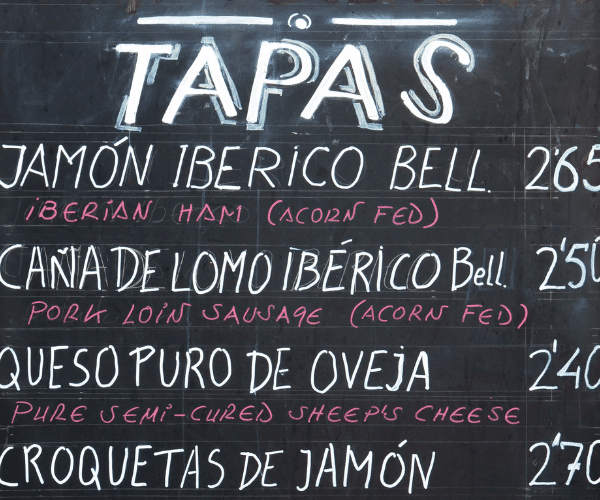 TAPAS
JAMÓN IBERICO BELL. 2'65
IBERIAN HAM (ACORN FED)
CAÑA DE LOMO IBÉRICO Bell. 2'50
PORK LOIN SAUSAGE (ACORN FED)
QUESO PURO DE OVEJA 2'40
PURE SEMI-CURED SHEEP'S CHEESE
CROQUETAS DE JAMÓN 2'70